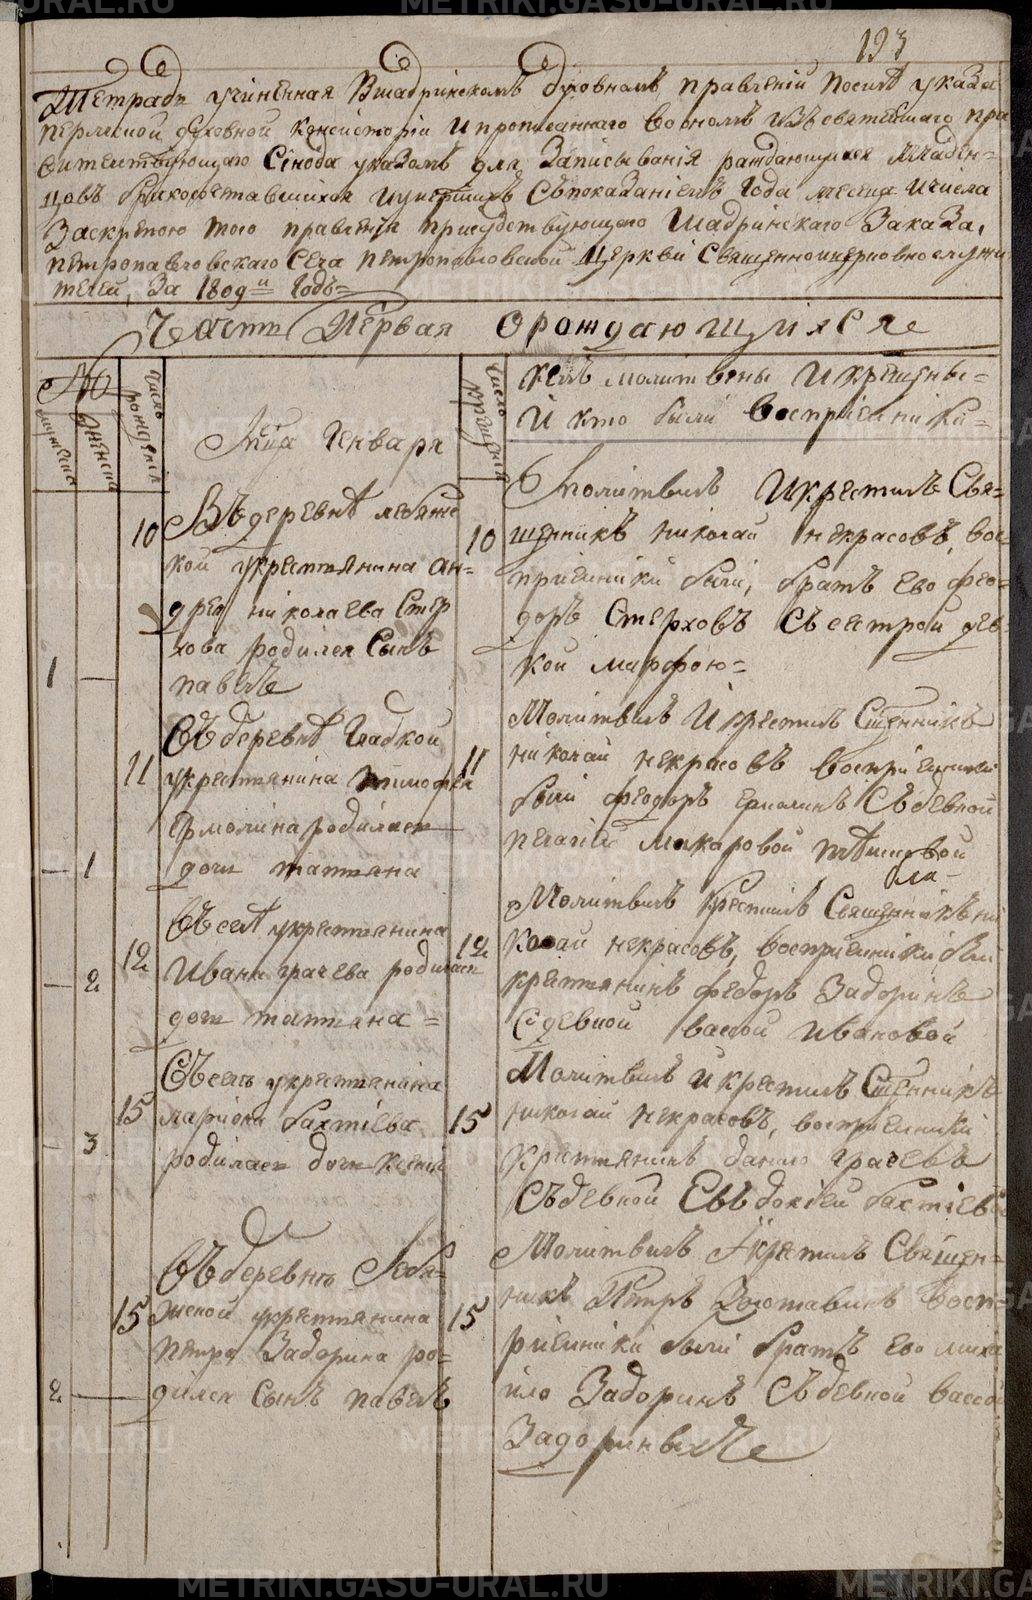 193
Тетрадь учиненная Вшадринскомъ духовномъ правленiи посилѣ указа
пермской духовной консисторiи и прописаннаго вономъ изъ святѣйшаго пра
вителствующаго Сѵнода указомъ для Записыванiя раждающихся младен=
цовъ бракосочетавшихся иумершихъ Съпоказанiемъ Года месяца ичисла
Заскрепою того правленiя присудствующаго Шадринскаго Заказа,
петропавловскаго Села петропавловской Церкви Священноицерковнослужи
телей, За 1809й Годъ=
Часть Первая орождающихся
№
мужеска
женска
число рожденiя
Мца Генваря
число крещенiя
кемъ молитвены икрещены=
и кто были восприемники=
10
Въ деревнѣ лебяже
кой укрестьянина ан=
дрея николаева Стер
хова родился Сынъ
павелъ
1 —
10
Молитвилъ икрестилъ Свя=
щенникъ николай некрасовъ, вос
приемники были, братъ его фео
доръ Стерховъ Съсестрой дев
кой марфою=
11
Въ деревнѣ Гладкой
укрестьянина тимофея
ермолина родилась
дочь татьяна
— 1
11
Молитвилъ икрестилъ Сщенникъ
николай некрасовъ восприемники
были феодоръ ермолинъ Съдевкой
пелагiей макаровой
12
Въселѣ укрестьянина
Ивана грачева родилась
дочь татьяна=
— 2
12
Молитвилъ крестилъ Священникъ ни
колай некрасовъ, восприемники были
крестьянинъ федоръ Задоринъ
Сдевкой вассой ивановой
15
Въселѣ укрестьянина
лариона бахтiева
родилась дочь ксенiя
— 3
15
Молитвилъ икрестилъ Сщенникъ
николай некрасовъ, восприемники
крестьянинъ данило грачевъ
Съдевкой Евъдокiей бахтiевой
15
Въдеревнѣ Лебя=
жской укрестьянина
петра Задорина ро=
дился Сынъ павелъ
2 —
15
Молитвилъ икрестилъ Священ=
никъ Петръ Золотавинъ восп=
риемники были братъ его миха
ило Задоринъ Съдевкой вассой
Задориныхъ